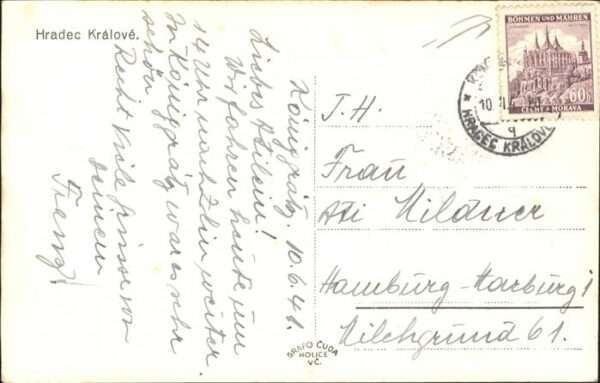 Hradec Králové.
Königgrätz. 10.6.41.
Liebes Atilein!
Wir fahren heute um
14 Uhr nach Zlin weiter.
In Königgrätz war es sehr
schön.
Recht viele Grüsse von
deinem
Franzl
BÖHMEN UND MÄHREN
60
ČECHY A MORAVA
HRADEC KRÁLOVÉ
9
J. H.
Frau
Ati Mildner
Hamburg-Harburg 1
Milchgrund 61.
GRAFO ČUDA
HOLICE
VČ.